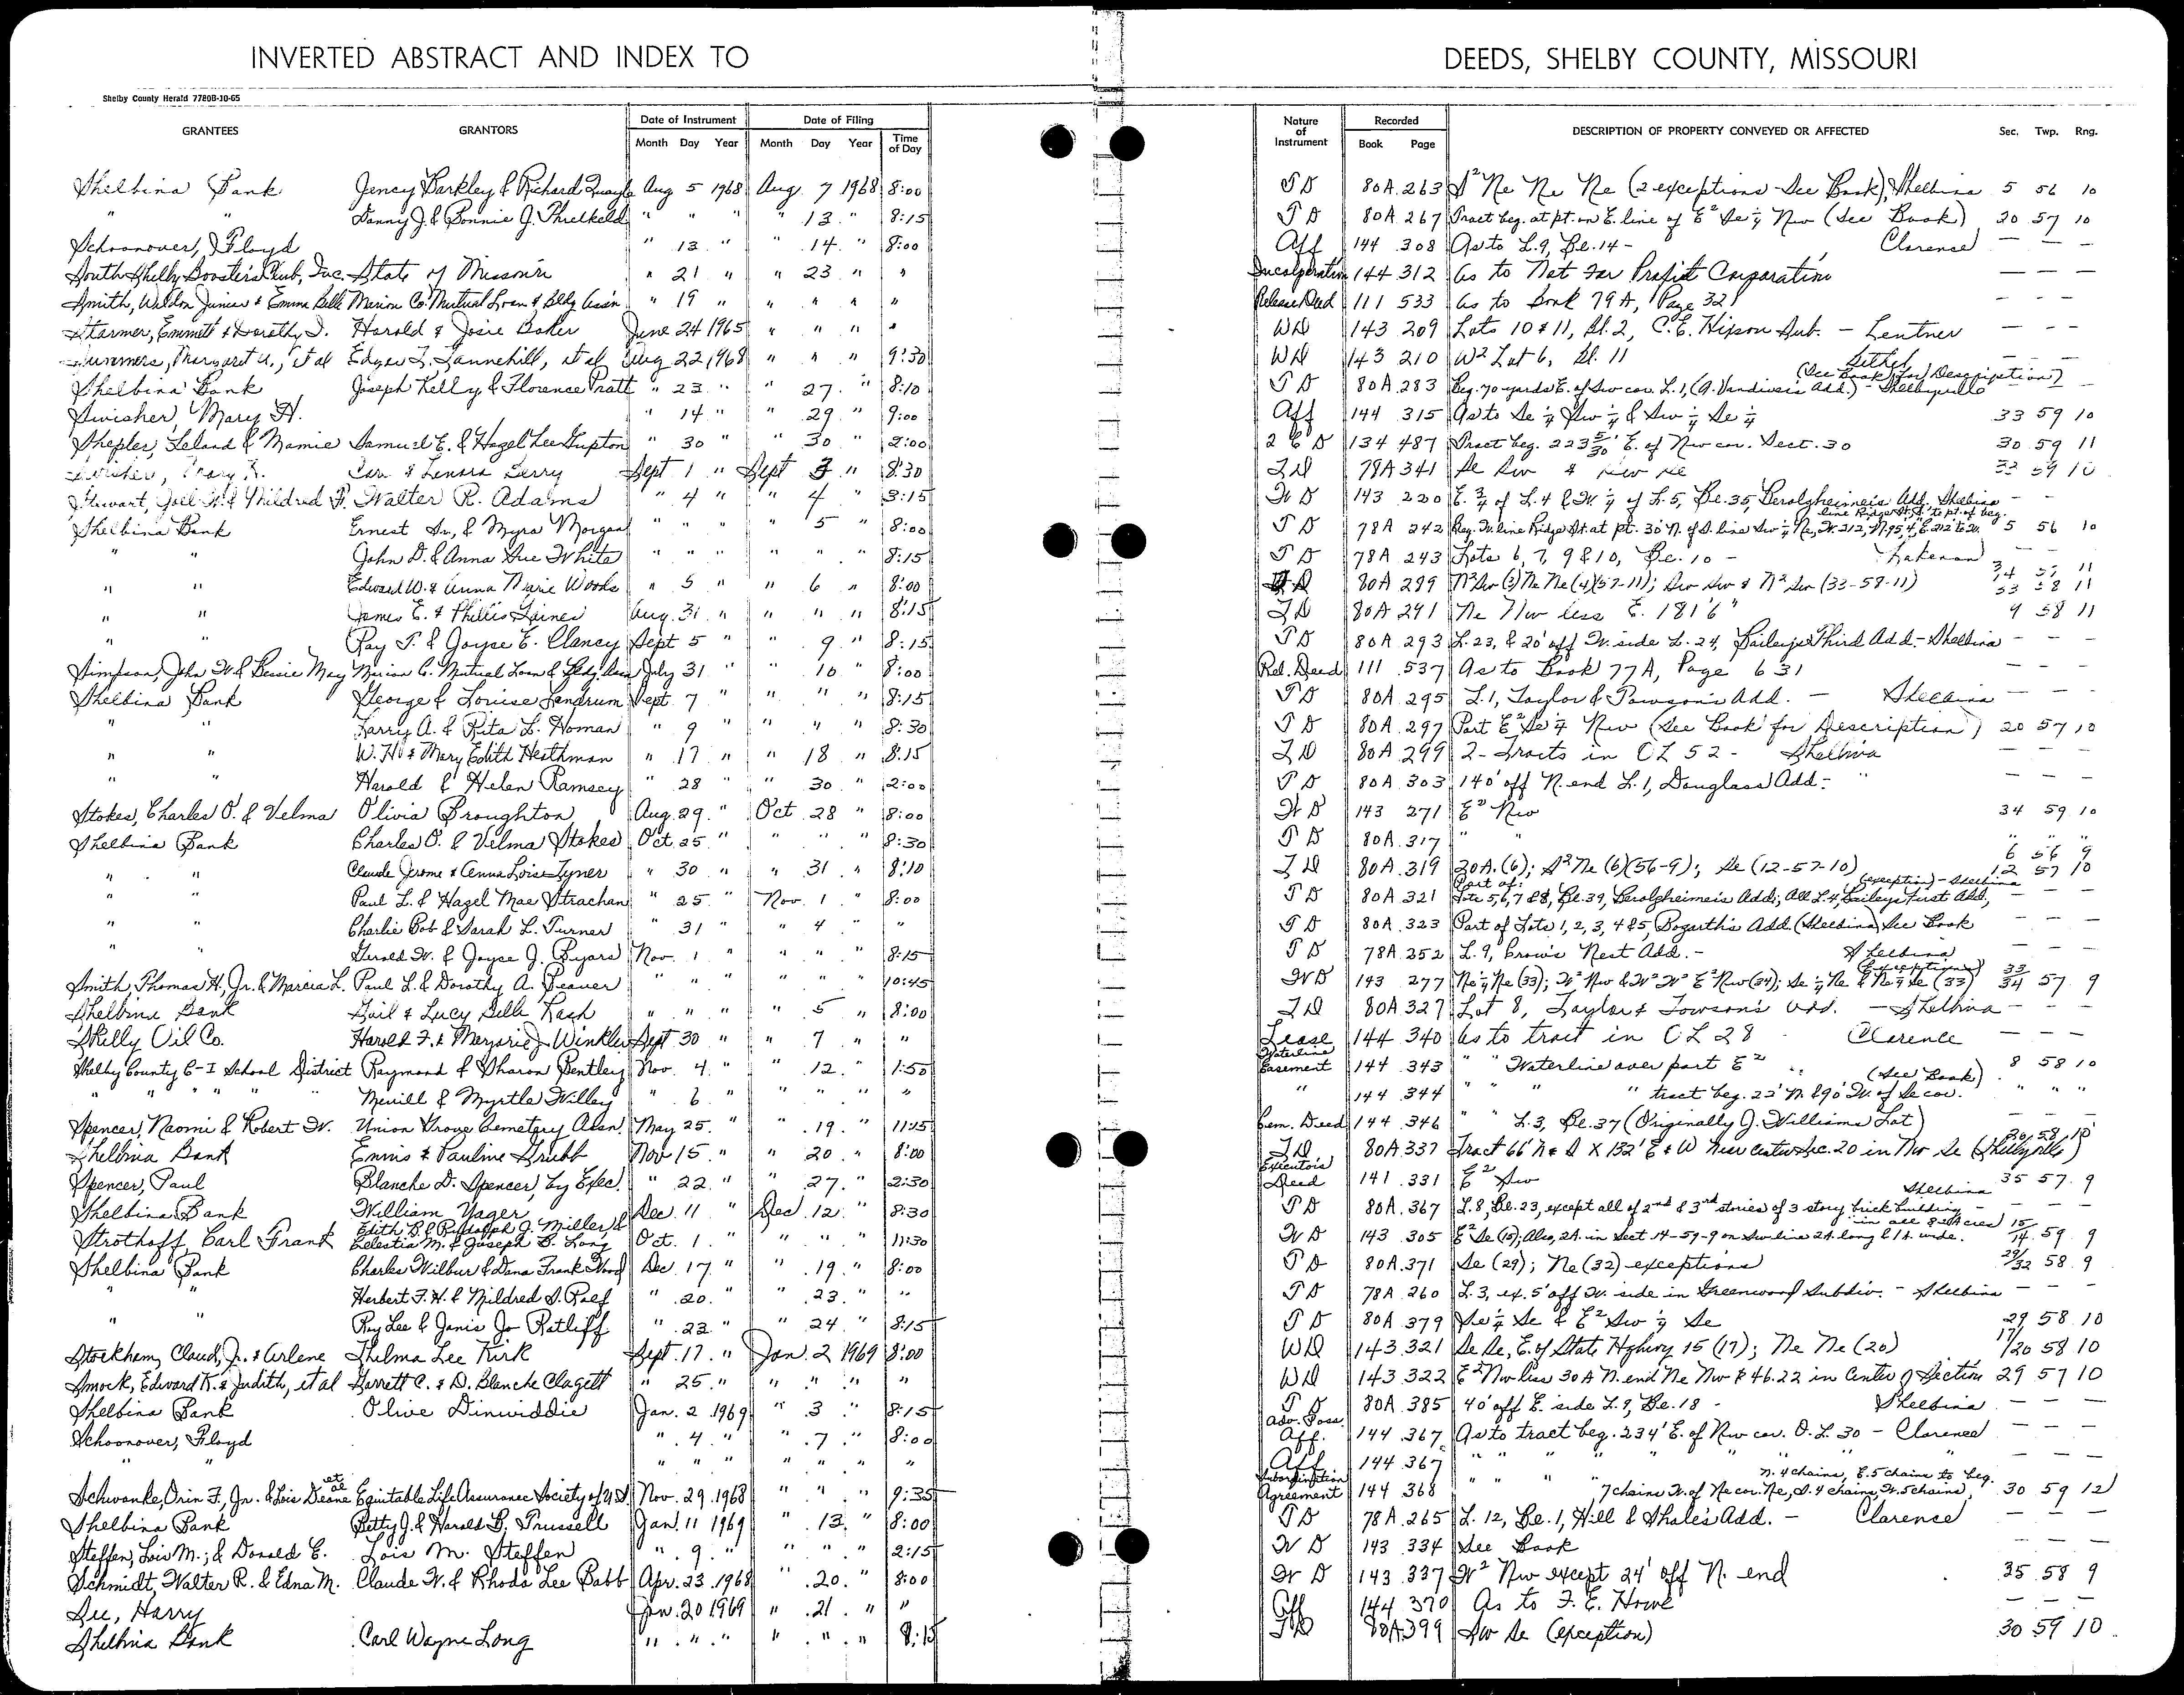 INVERTED ABSTRACT AND INDEX TO DEEDS, SHELBY COUNTY, MISSOURI
Shelby County Herald 7780B-10-65
GRANTEES GRANTORS Date of Instrument Date of Filing Nature of Instrument Recorded DESCRIPTION OF PROPERTY CONVEYED OR AFFECTED Sec. Twp. Rng.
Month Day Year Month Day Year Time of Day Book Page
Shelbina Bank Jency Barkley & Richard Quayle Aug 5 1968 Aug. 7 1968 8:00 TD 80A 263 S² Ne Ne Ne (2 exceptions - See Book), Shelbina 5 56 10
" " Danny J. & Bonnie J. Threlkeld " " " " 13 " 8:15 TD 80A 267 Tract beg. at pt. on E. line of E² Se ¼ Nw (See Book) 20 57 10
Schoonover, Floyd " 13 " " 14 " 8:00 Aff 144 308 As to L. 9, Bl. 14 - Clarence — — —
South Shelby Booster's Club, Inc. State of Missouri " 21 " " 23 " " Incorporation 144 312 As to Not For Profit Corporation — — —
Smith, Weldon Junior & Emma Belle Marion Co. Mutual Loan & Bldg Assn " 19 " " " " " Release Deed 111 533 As to Book 79A, Page 321 — — —
Starmer, Emmett & Dorothy I. Harold & Josie Baker June 24 1965 " " " " WD 143 209 Lots 10 & 11, Bl. 2, C.E. Hixson Sub. - Lentner — — —
Summers, Margaret A., et al Edgar L. Tannehill, et al Aug 22, 1968 " " " 9:30 WD 143 210 W² Lot 6, Bl. 11 Bethel — —
Shelbina Bank Joseph Kelly & Florence Pratt " 23 " " 27 " 8:10 TD 80A 283 Beg. 70 yards E. of Sw cor. L. 1, (A. Vandiver's Add.) - Shelbyville (See Book for Description) — —
Swisher, Mary H. " 14 " " 29 " 9:00 Aff 144 315 As to Se ¼ Sw ¼ & Sw ¼ Se ¼ 33 59 10
Sheples, Leland & Mamie Samuel E. & Hazel Lee Gupton " 30 " " 30 " 2:00 2 C D 134 487 Tract beg. 223 5/30' E. of Nw cor. Sect. 30 30 59 11
Swisher, Mary H. & Lenora Berry Sept 1 " Sept 3 " 8:30 TD 78A 341 Se Sw & 33 59 10
Stewart, Joel H. & Mildred F. Walter R. Adams " 4 " " 4 " 3:15 WD 143 220 E. ¾ of L. 4 & W. ¼ of L. 5, Bl. 35, Berolzheimer's Add. Shelbina — —
Shelbina Bank Ernest Sr., & Myra Morgan " " " " 5 " 8:00 TD 78A 242 Beg. W. line Ridge St. at pt. 30' N. of S. line Sw ¼ Ne, W. 212', N. 95.4', E. 212' to W. line Ridge St. S. to pt. of beg. 5 56 10
" " John D. & Anna Sue White " " " " " " 8:15 TD 78A 243 Lots 6, 7, 9 & 10, Bl. 10 - Lakenan — —
" " Edward W. & Anna Marie Woods " 5 " " 6 " 8:00 TD 80A 289 N² Sw (3) Ne Ne (4) (57-11); Sw Sw & N² Sw (33-58-11) 3/4 57 11 33 58 11
" " James E. & Phillis Gaines Aug. 31 " " " " 8:15 TD 80A 291 Ne Nw less E. 181'6" 9 58 11
" " Ray T. & Joyce E. Clancy Sept 5 " " 9 " 8:15 TD 80A 293 L. 23, & 20' off W. side L. 24, Bailey's Third Add. - Shelbina — — —
Simpson, John W. & Bessie May Marion C. Mutual Loan & Bldg. Assn July 31 " " 10 " 8:00 Rel. Deed 111 537 As to Book 77A, Page 631 — — —
Shelbina Bank George & Louise Landrum Sept 7 " " " " 8:15 TD 80A 295 L. 1, Taylor & Towson's Add. - Shelbina — — —
" " Larry A. & Rita L. Homan " 9 " " " 8:30 TD 80A 297 Part E² Se ¼ Nw (See Book for Description) 20 57 10
" " W. H. & Mary Edith Heathman " 17 " " 18 " 8:15 TD 80A 299 2- Tracts in OL 52 - Shelbina — — —
" " Harold & Helen Ramsey " 28 " 30 " 2:00 TD 80A 303 140' off N. end L. 1, Douglass Add. - " — — —
Stokes, Charles O. & Velma Olivia Broughton Aug. 29. " Oct 28 " 8:00 WD 143 271 E² Nw 34 59 10
Shelbina Bank Charles O. & Velma Stokes Oct. 25 " " " " 8:30 TD 80A 317 " " " " "
" " Claude Jerome & Anna Lois Tyner " 30 " " 31 " 8:10 TD 80A 319 30A. (6); S² Ne (6)(56-9); Se (12-57-10) 6 56 9 12 57 10
" " Paul L. & Hazel Mae Strachan " 25 " Nov. 1 " 8:00 TD 80A 321 Part of: Lots 5, 6, 7 & 8, Bl. 39, Berolzheimer's Add; All L. 4, Bailey's First Add, (exception) - Shelbina — —
" " Charlie Bob & Sarah L. Turner " 31 " " 4 " " TD 80A 323 Part of Lots 1, 2, 3, 4 & 5, Bogarth's Add. (Shelbina) See Book — — —
" " Gerald W. & Joyce J. Byars Nov. 1 " " " " 8:15 TD 78A 252 L. 9, Crow's Nest Add. - Shelbina — — —
Smith, Thomas H., Jr. & Marcia L. Paul L. & Dorothy A. Beaver " " " " " 10:45 WD 143 277 Ne ¼ Ne (33); W² Nw & W² W² E² Nw (34); Se ¼ Ne & Ne ¼ Se (33) (Exceptions) 33/34 57 9
Shelbina Bank Gail & Lucy Belle Rash " " " " 5 " 8:00 TD 80A 327 Lot 8, Taylor & Towson's Add. - Shelbina — — —
Skelly Oil Co. Harold F. & Marjorie J. Winkler Sept 30 " " 7 " " Lease 144 340 As to tract in OL 28 - Clarence — — —
Shelby County C-I School District Raymond & Sharon Bentley Nov. 4 " " 12 " 1:50 Waterline Easement 144 343 " " Waterline over part E² 8 58 10
" " " " " Merrill & Myrtle Willey " 6 " " " " " " 144 344 " " " tract beg. 22' N. & 90' W. of Se cor. (See Book) " " "
Spencer, Naomi & Robert W. Union Grove Cemetery Assn. May 25. " " 19. " 11:15 Cem. Deed 144 346 " " L. 3, Bl. 37 (Originally J. Williams Lot) — — —
Shelbina Bank Emmis & Pauline Grubb Nov 15 " " 20 " 8:00 TD 80A 337 Tract 66' N & S X 132' E & W Near center Sec. 20 in Nw Se (Shelbyville) 20 58 10
Spencer, Paul Blanche D. Spencer, by Exec. " 22. " " 27. " 2:30 Executor's Deed 141 331 E² Sw 35 57 9
Shelbina Bank William Yager Dec. 11 " Dec. 12. " 8:30 TD 80A 367 L. 8, Bl. 23, except all of 2nd & 3rd stories of 3 story brick building - Shelbina — — —
Strothoff, Carl Frank Edith B. & Rudolph J. Miller, & Celestia M. & Joseph B. Long Oct. 1. " " " " 11:30 WD 143 305 E² Se (15); Also, 2A. in Sect 14-59-9 on Sw line 2A. long & 1A. wide. in all 82 Acres 15/14 59 9
Shelbina Bank Charles Wilbur & Dana Frank Wood Dec. 17. " " 19. " 8:00 TD 80A 371 Se (29); Ne (32) exceptions 29/32 58 9
" " Herbert F. H. & Mildred D. Raef " 20. " " 23. " " TD 78A 260 L. 3, ex. 5' off W. side in Greenwood Subdiv. - Shelbina — —
" " Roy Lee & Janis Jo Ratliff " 23 " " 24 " 8:15 TD 80A 379 Se ¼ Se & E² Sw ¼ Se 29 58 10
Stockham, Claud, Jr. & Arlene Thelma Lee Kirk Sept. 17. " Jan. 2 1969 8:00 WD 143 321 Se Se, E. of State Hghwy 15 (17); Ne Ne (20) 17/20 58 10
Smock, Edward K. & Judith, et al Garrett C. & D. Blanche Clagett " 25. " " " " " WD 143 322 E² Nw less 30A N. end Ne Nw & 46.22 in Center of Section 29 57 10
Shelbina Bank Olive Dinwiddie Jan. 2. 1969 " 3 " 8:15 TD 80A 385 40' off E. side L. 9, Bl. 18 - Shelbina — —
Schoonover, Floyd " 4. " " 7. " 8:00 Adv. Poss. Aff. 144 367 As to tract beg. 234' E. of Nw cor. O.L. 30 - Clarence — — —
" " " " " " " " " Aff 144 367 " " " " " " " — — —
Schwanke, Orin F., Jr. & Lois Deane et al Equitable Life Assurance Society of U.S. Nov. 29. 1968 " " " 9:35 Subordination Agreement 144 368 " " " " 7 chains W. of Ne cor. Ne, S. 4 chains, W. 5 chains, N. 4 chains, E. 5 chains to beg. 30 59 12
Shelbina Bank Betty J. & Harold B. Trussell Jan. 11 1969 " 13. " 8:00 TD 78A 265 L. 12, Bl. 1, Hill & Shale's Add. - Clarence — — —
Steffen, Lois M.; & Donald E. Lois M. Steffen " 9. " " " " 2:15 WD 143 334 See Book — — —
Schmidt, Walter R. & Edna M. Claude W. & Rhoda Lee Babb Apr. 23. 1968 " 20. " 8:00 WD 143 337 W² Nw except 24' off N. end 35 58 9
See, Harry Jan. 20 1969 " 21. " " Aff 144 370 As to F. E. Howe — — —
Shelbina Bank Carl Wayne Long " " " " " " 8:15 TD 80A 399 Sw Se (exception) 30 59 10